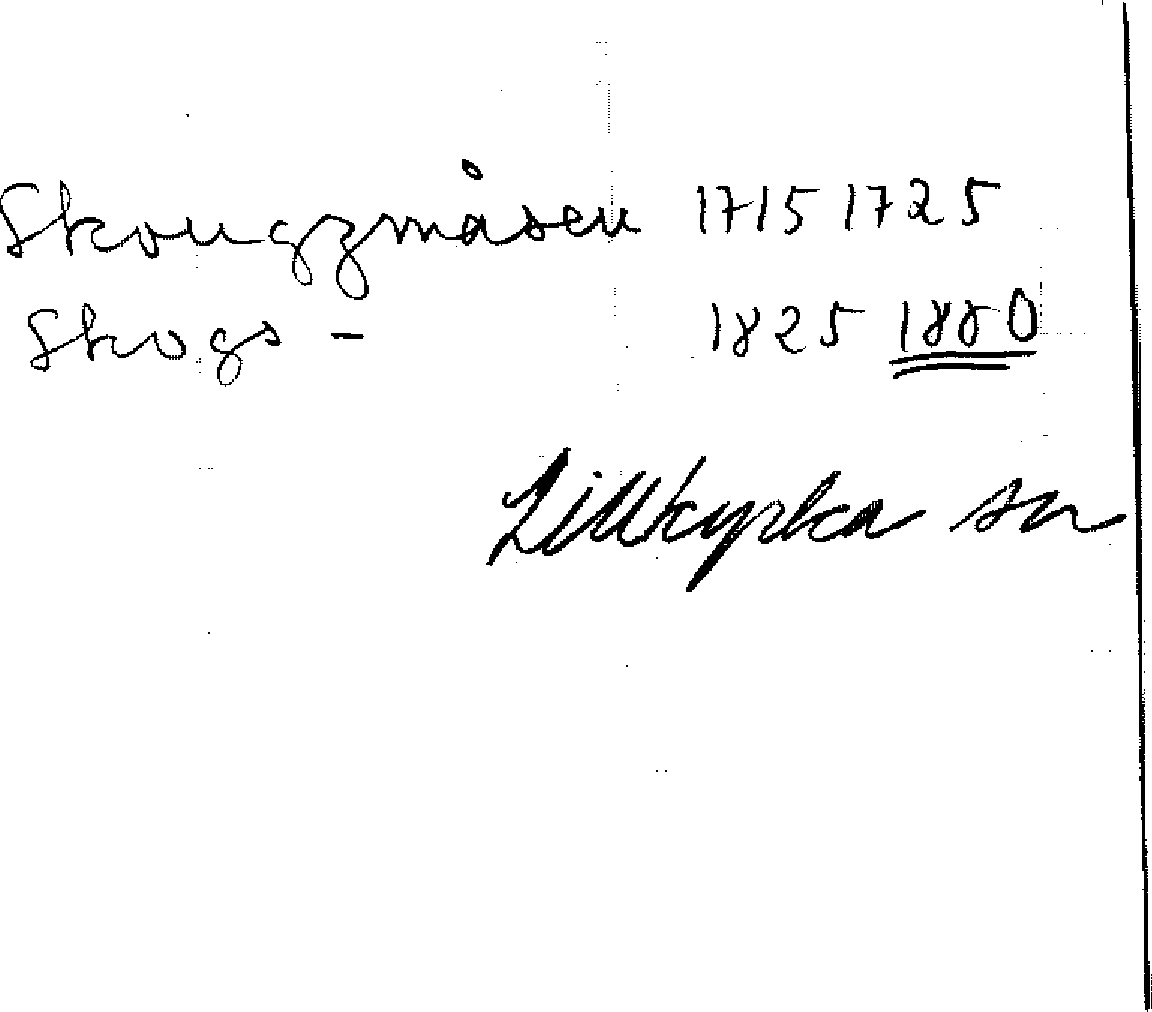 Skougzmåsen 1715 1725
Skogs - 1825 1880
Lillkyrka sn